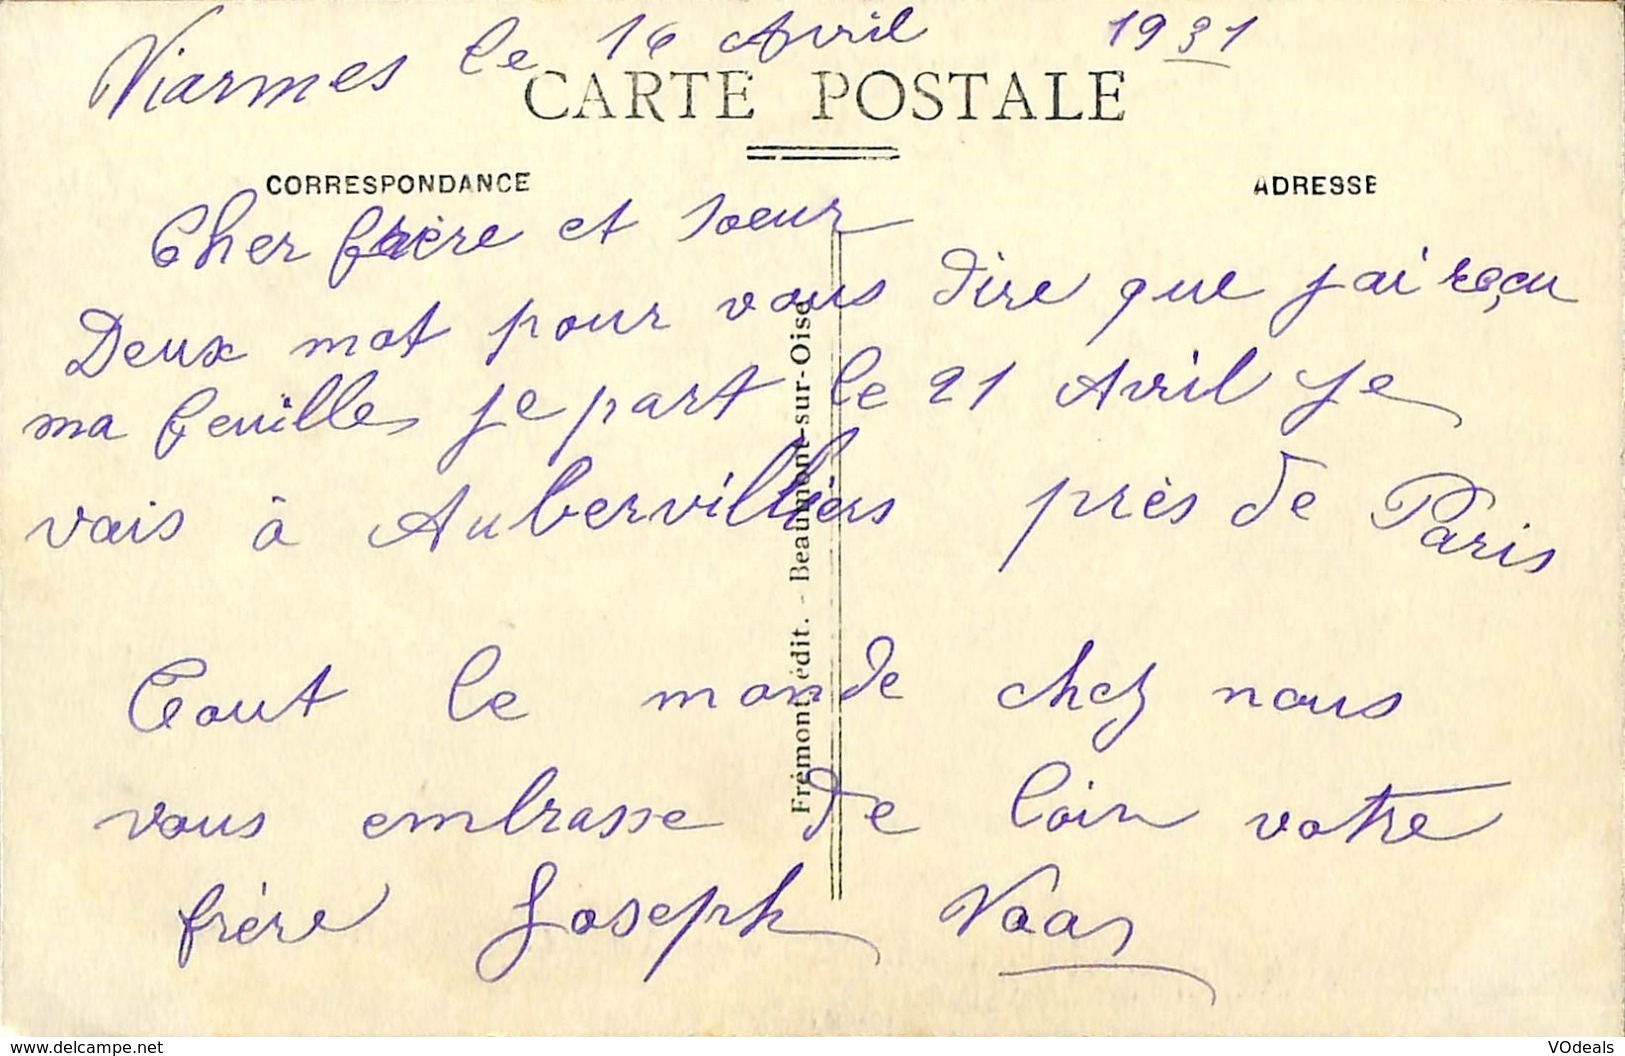 Viarmes le 16 Avril 1931
CARTE POSTALE
CORRESPONDANCE
ADRESSE
Cher frère et soeur
Deux mot pour vous dire que j'ai reçu
ma feuille je part le 21 Avril je
vais à Aubervilliers près de Paris
Tout le monde chez nous
vous embrasse de loin votre
frère Joseph
Frémont, édit. - Beaumont-sur-Oise
www.delcampe.net
VOdeals